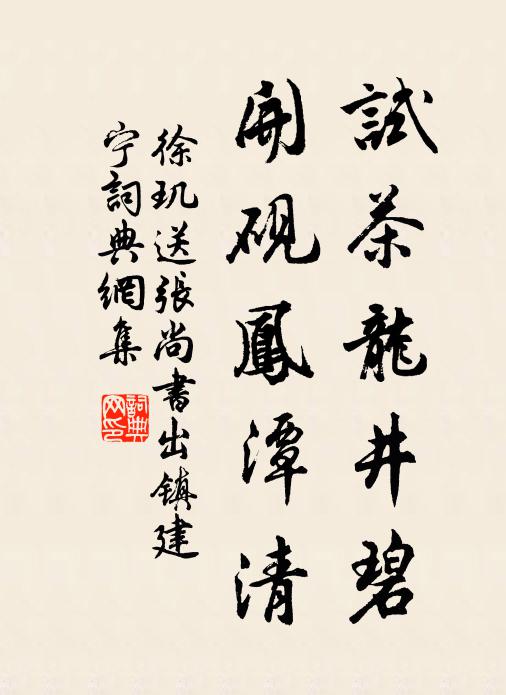 試茶龍井碧
開硯鳳潭清
徐玑送張尚書出镇建
宁詞典網集
詞典网印